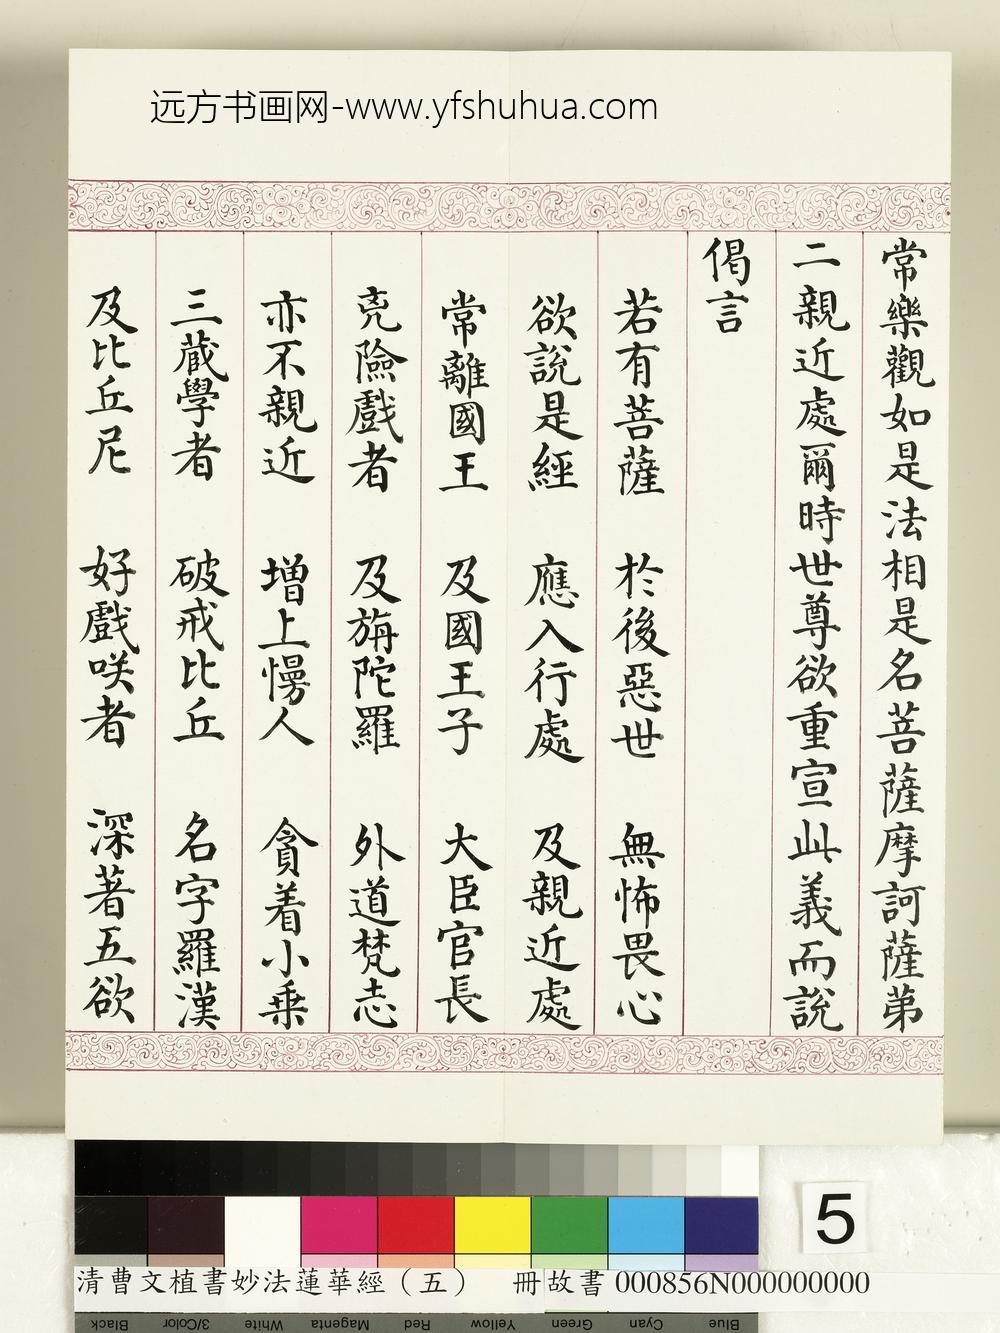 远方书画网-www.yfshuhua.com
常樂觀如是法相是名菩薩摩訶薩弟
二親近處爾時世尊欲重宣此義而說
偈言
若有菩薩 於後惡世 無怖畏心
欲說是經 應入行處 及親近處
常離國王 及國王子 大臣官長
兇險戲者 及旃陀羅 外道梵志
亦不親近 增上慢人 貪着小乗
三藏學者 破戒比丘 名字羅漢
及比丘尼 好戲咲者 深著五欲
5
清曹文植書妙法蓮華經（五） 冊故書 000856N000000000
Black 3/Color White Magenta Red Yellow Green Cyan Blue